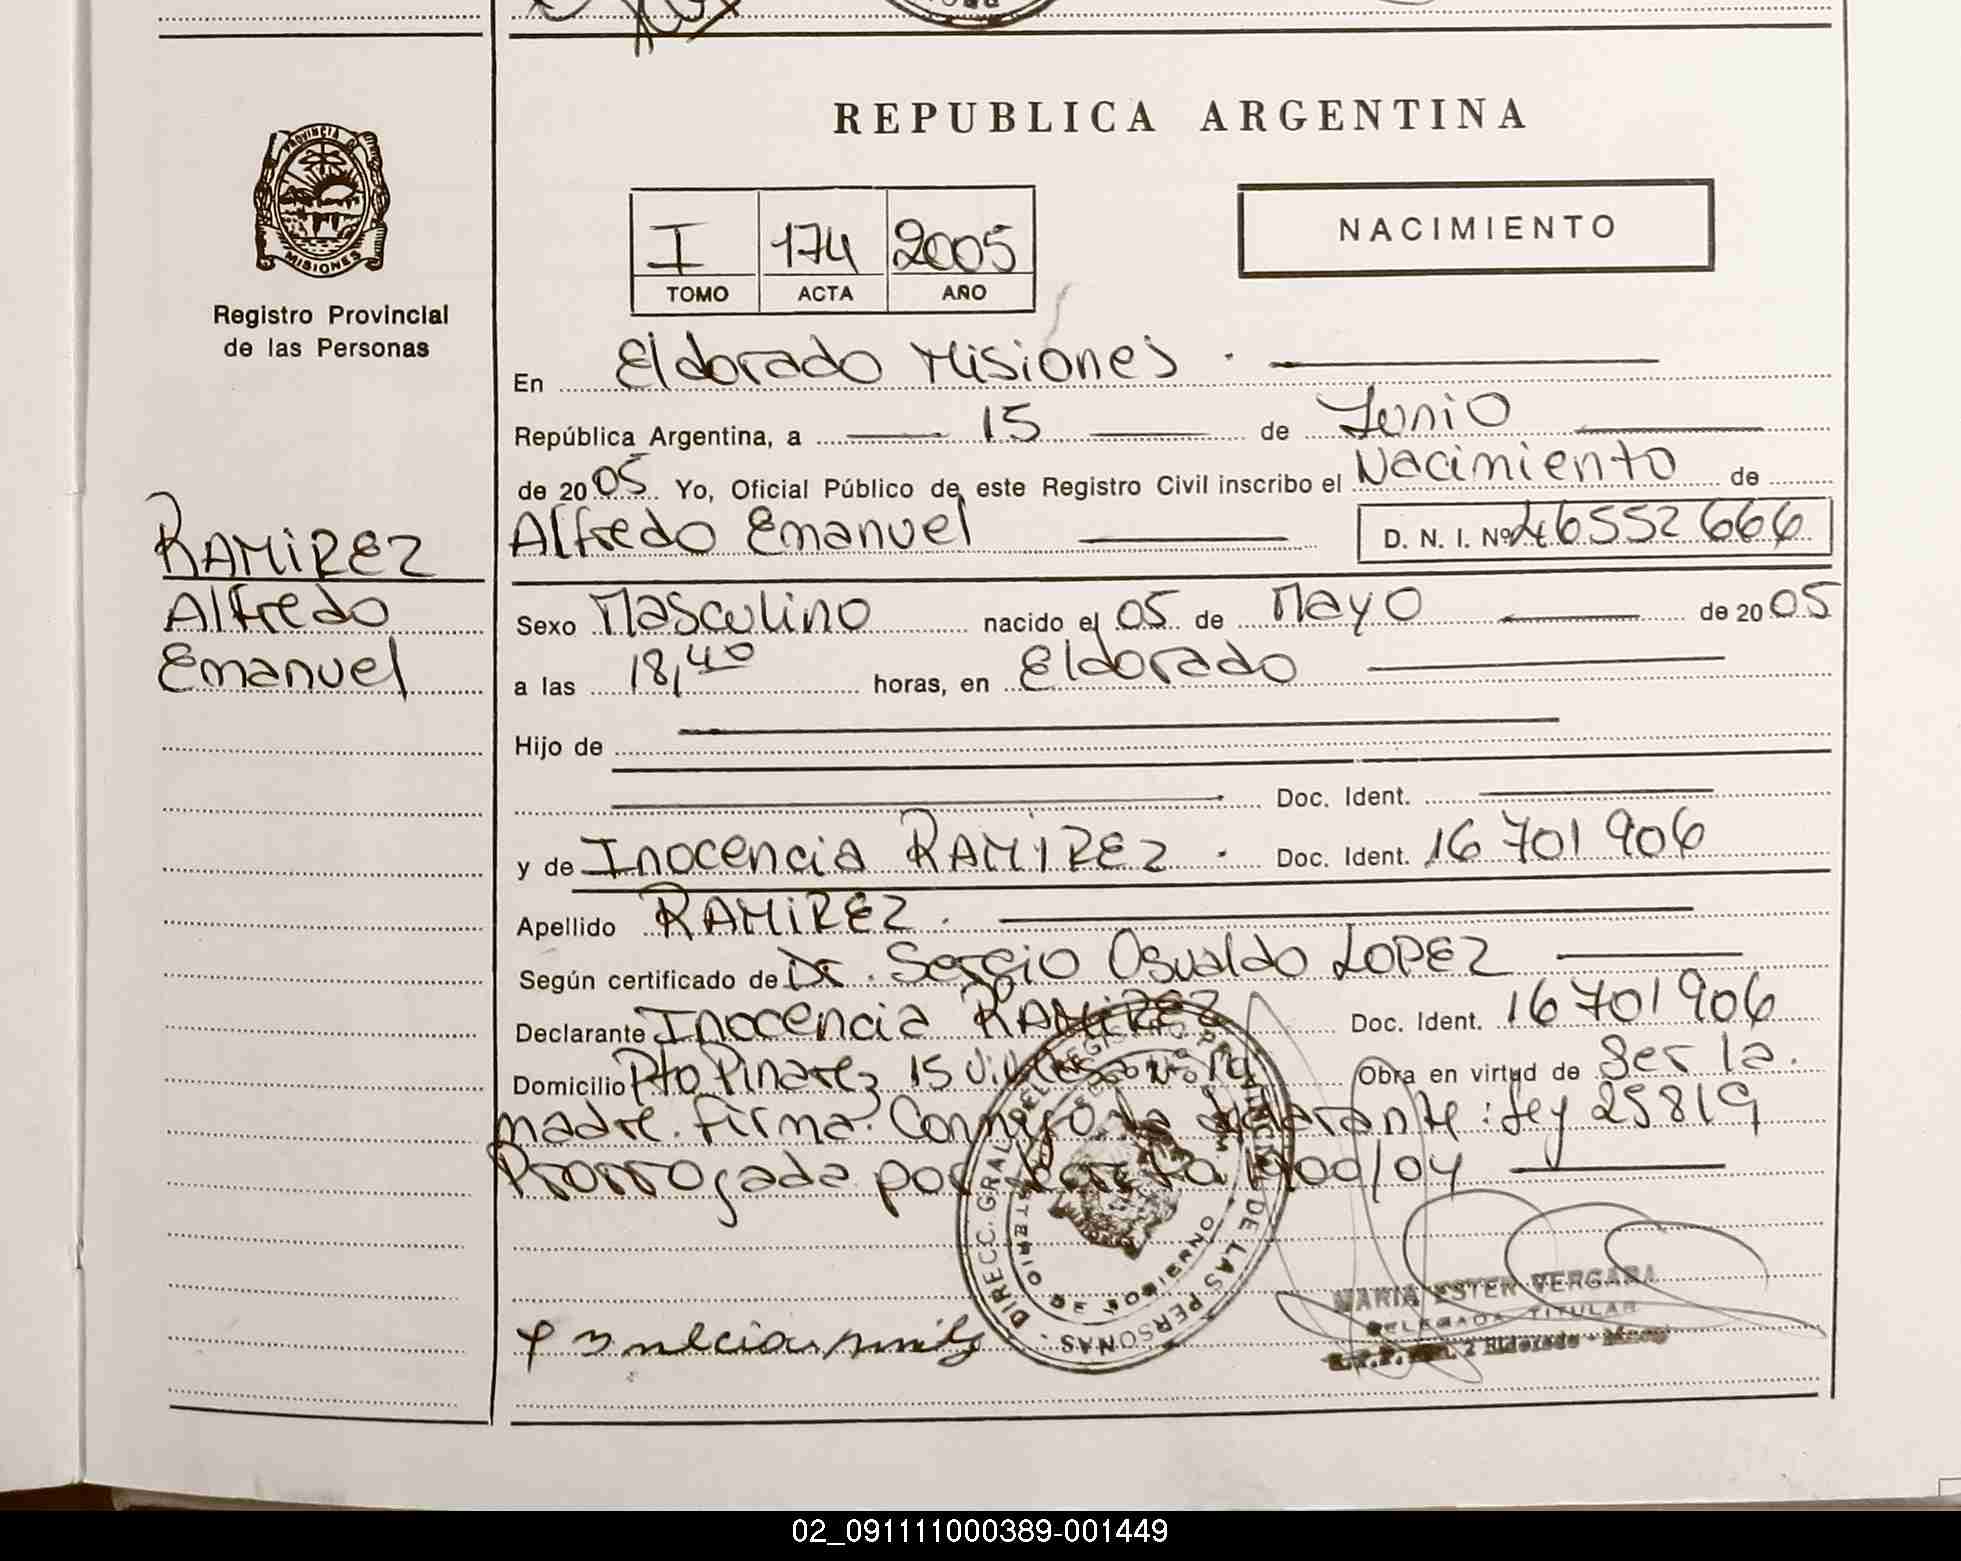 REPUBLICA ARGENTINA
PROVINCIA DE
MISIONES
Registro Provincial
de las Personas
I 174 2005
TOMO ACTA AÑO
NACIMIENTO
En Eldorado Misiones.
República Argentina, a 15 de Junio
de 2005 Yo, Oficial Público de este Registro Civil inscribo el Nacimiento de
RAMIREZ
Alfredo
Emanuel
Alfredo Emanuel D. N. I. Nº 46552666
Sexo Masculino nacido el 05 de Mayo de 2005
a las 18,40 horas, en Eldorado
Hijo de
Doc. Ident.
y de Inocencia RAMIREZ. Doc. Ident. 16 701 906
Apellido RAMIREZ.
Según certificado de Dr. Sergio Osvaldo LOPEZ
Declarante Inocencia RAMIREZ Doc. Ident. 16 701 906
Domicilio Pto Pinares 15 Obra en virtud de Ser la
madre. firma. Conmigo la declarante: Ley 25819
Prorrogada por 1900/04
DIRECC. GRAL. DEL REGISTRO PROVINCIAL DE LAS PERSONAS
DE GOBIERNO
MARIA ESTER VERGARA
DELEGADA TITULAR
2 Eldorado
02_091111000389-001449